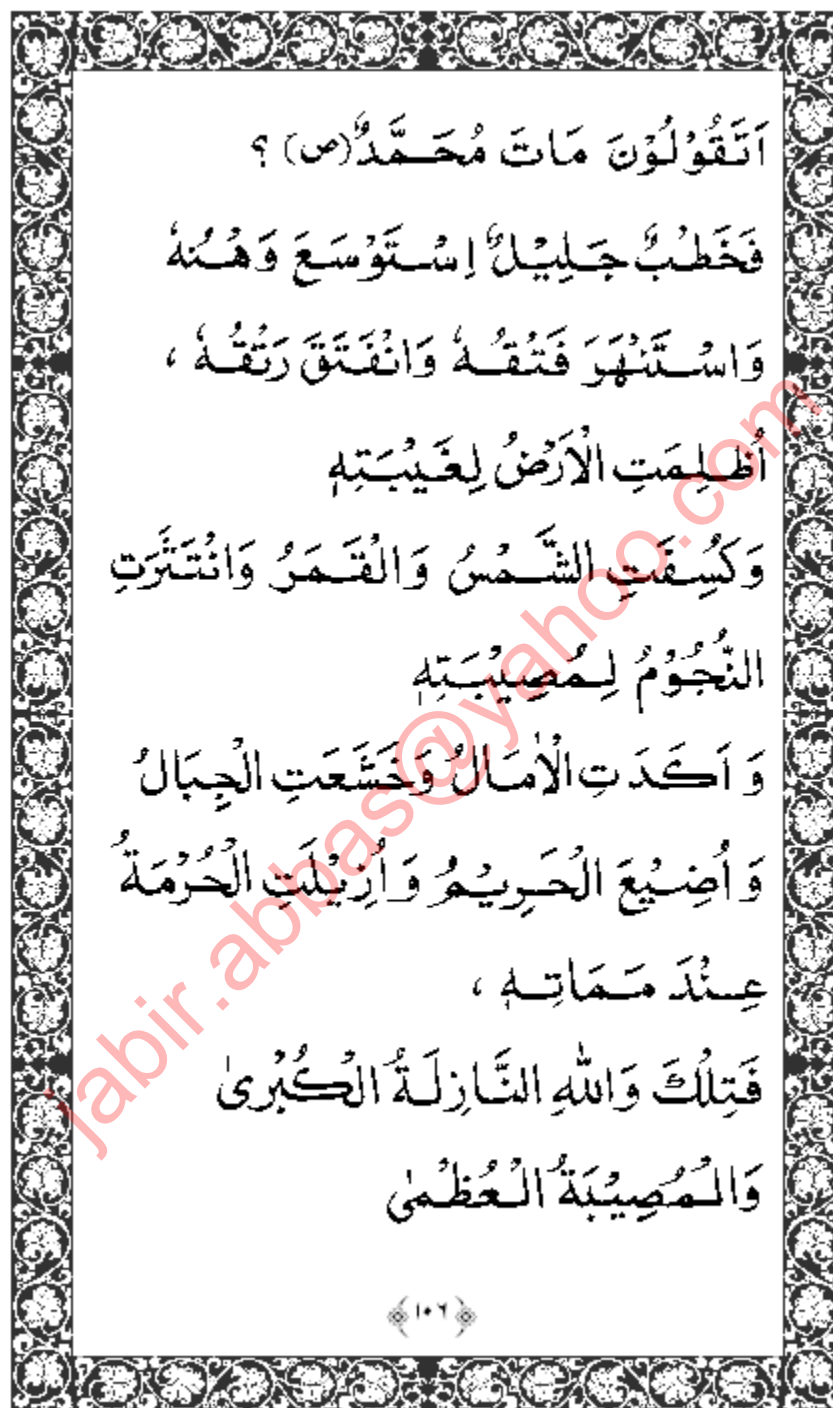 اَتَقُوْلُوْنَ مَاتَ مُحَمَّدٌ(ص) ؟
فَخَطْبٌ جَلِيْلٌ اِسْتَوْسَعَ وَهْنُهٗ
وَاسْتَنْهَرَ فَتْقُهٗ وَانْفَتَقَ رَتْقُهٗ ،
اُظْلِمَتِ الْاَرْضُ لِغَيْبَتِهٖ
وَكُسِفَتِ الشَّمْسُ وَالْقَمَرُ وَانْتَثَرَتِ
النُّجُوْمُ لِمُصِيْبَتِهٖ
وَ اَكَدَتِ الْاٰمَالُ وَخَشَعَتِ الْجِبَالُ
وَ اُضِيْعَ الْحَرِيْمُ وَ اُزِيْلَتِ الْحُرْمَةُ
عِنْدَ مَمَاتِهٖ ،
فَتِلْكَ وَاللهِ النَّازِلَةُ الْكُبْرىٰ
وَالْمُصِيْبَةُ الْعُظْمىٰ
﴿۱۰۶﴾
jabir.abbas@yahoo.com